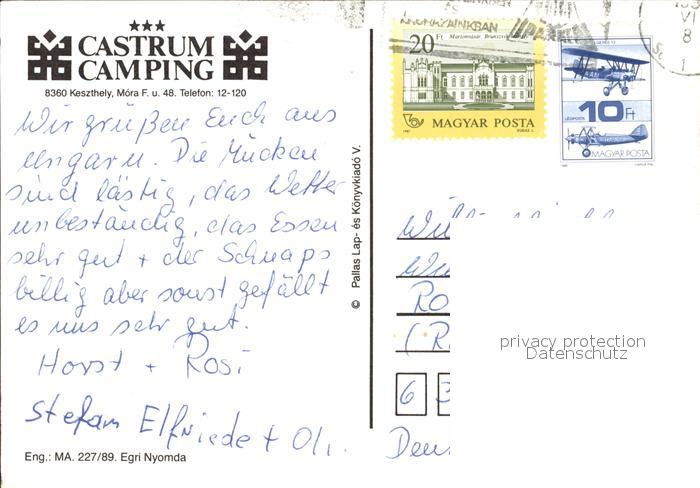 ★★★
CASTRUM
CAMPING
8360 Keszthely, Móra F. u. 48. Telefon: 12-120
Wir grüßen Euch aus
Ungarn. Die Mücken
sind lästig, das Wetter
unbeständig, das Essen
sehr gut + der Schnaps
billig aber sonst gefällt
es uns sehr gut.
Horst + Rosi
Stefan Elfriede + Oli.
Eng.: MA. 227/89. Egri Nyomda
© Pallas Lap- és Könyvkiadó V.
20 Ft
MAGYAR POSTA
LÉGIPOSTA
10 Ft
MAGYAR POSTA
Wu
Ro
(R
6 3
Deu
privacy protection
Datenschutz